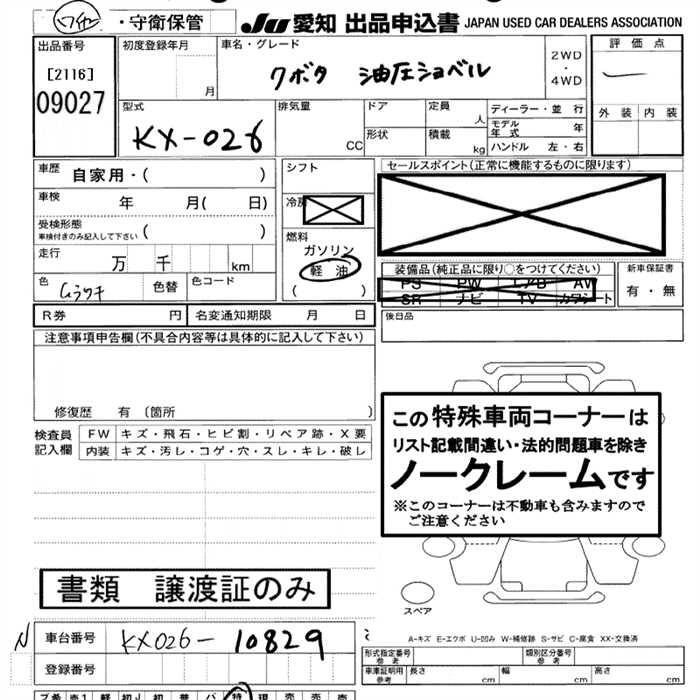 ・守衛保管 JU 愛知 出品申込書 JAPAN USED CAR DEALERS ASSOCIATION
出品番号
[2116]
09027
初度登録年月
月
車名・グレード
クボタ 油圧ショベル
2WD
・
4WD
評価点
外装 内装
型式
KX-026
排気量
CC
ドア
形状
定員
人
積載
kg
ディーラー・並 行
モデル年式 年
ハンドル 左・右
車歴
自家用・( )
車検 年 月( 日)
受検形態
車検付きのみ記入して下さい ( )
走行 万 千 km
色
色替
色コード
シフト
冷房
燃料
ガソリン
軽油
( )
セールスポイント(正常に機能するものに限ります)
装備品(純正品に限り○をつけてください)
PS PW エアB AW
SR ナビ TV カワシート
新車保証書
有・無
後日品
R券 円 名変通知期限 月 日
注意事項申告欄(不具合内容等は具体的に記入して下さい)
修復歴 有 〔箇所 〕
検査員
記入欄
FW キズ・飛石・ヒビ割・リペア跡・X要
内装 キズ・汚レ・コゲ・穴・スレ・キレ・破レ
この特殊車両コーナーは
リスト記載間違い・法的問題車を除き
ノークレームです
※このコーナーは不動車も含みますので
ご注意ください
書類 譲渡証のみ
スペア
N 車台番号 KX026-10829
登録番号
A-キズ E-エクボ U-凹み W-補修跡 S-サビ C-腐食 XX-交換済
形式指定番号
参考
類別区分番号
参考
車庫証明用
参考
長さ cm 幅 cm 高さ cm